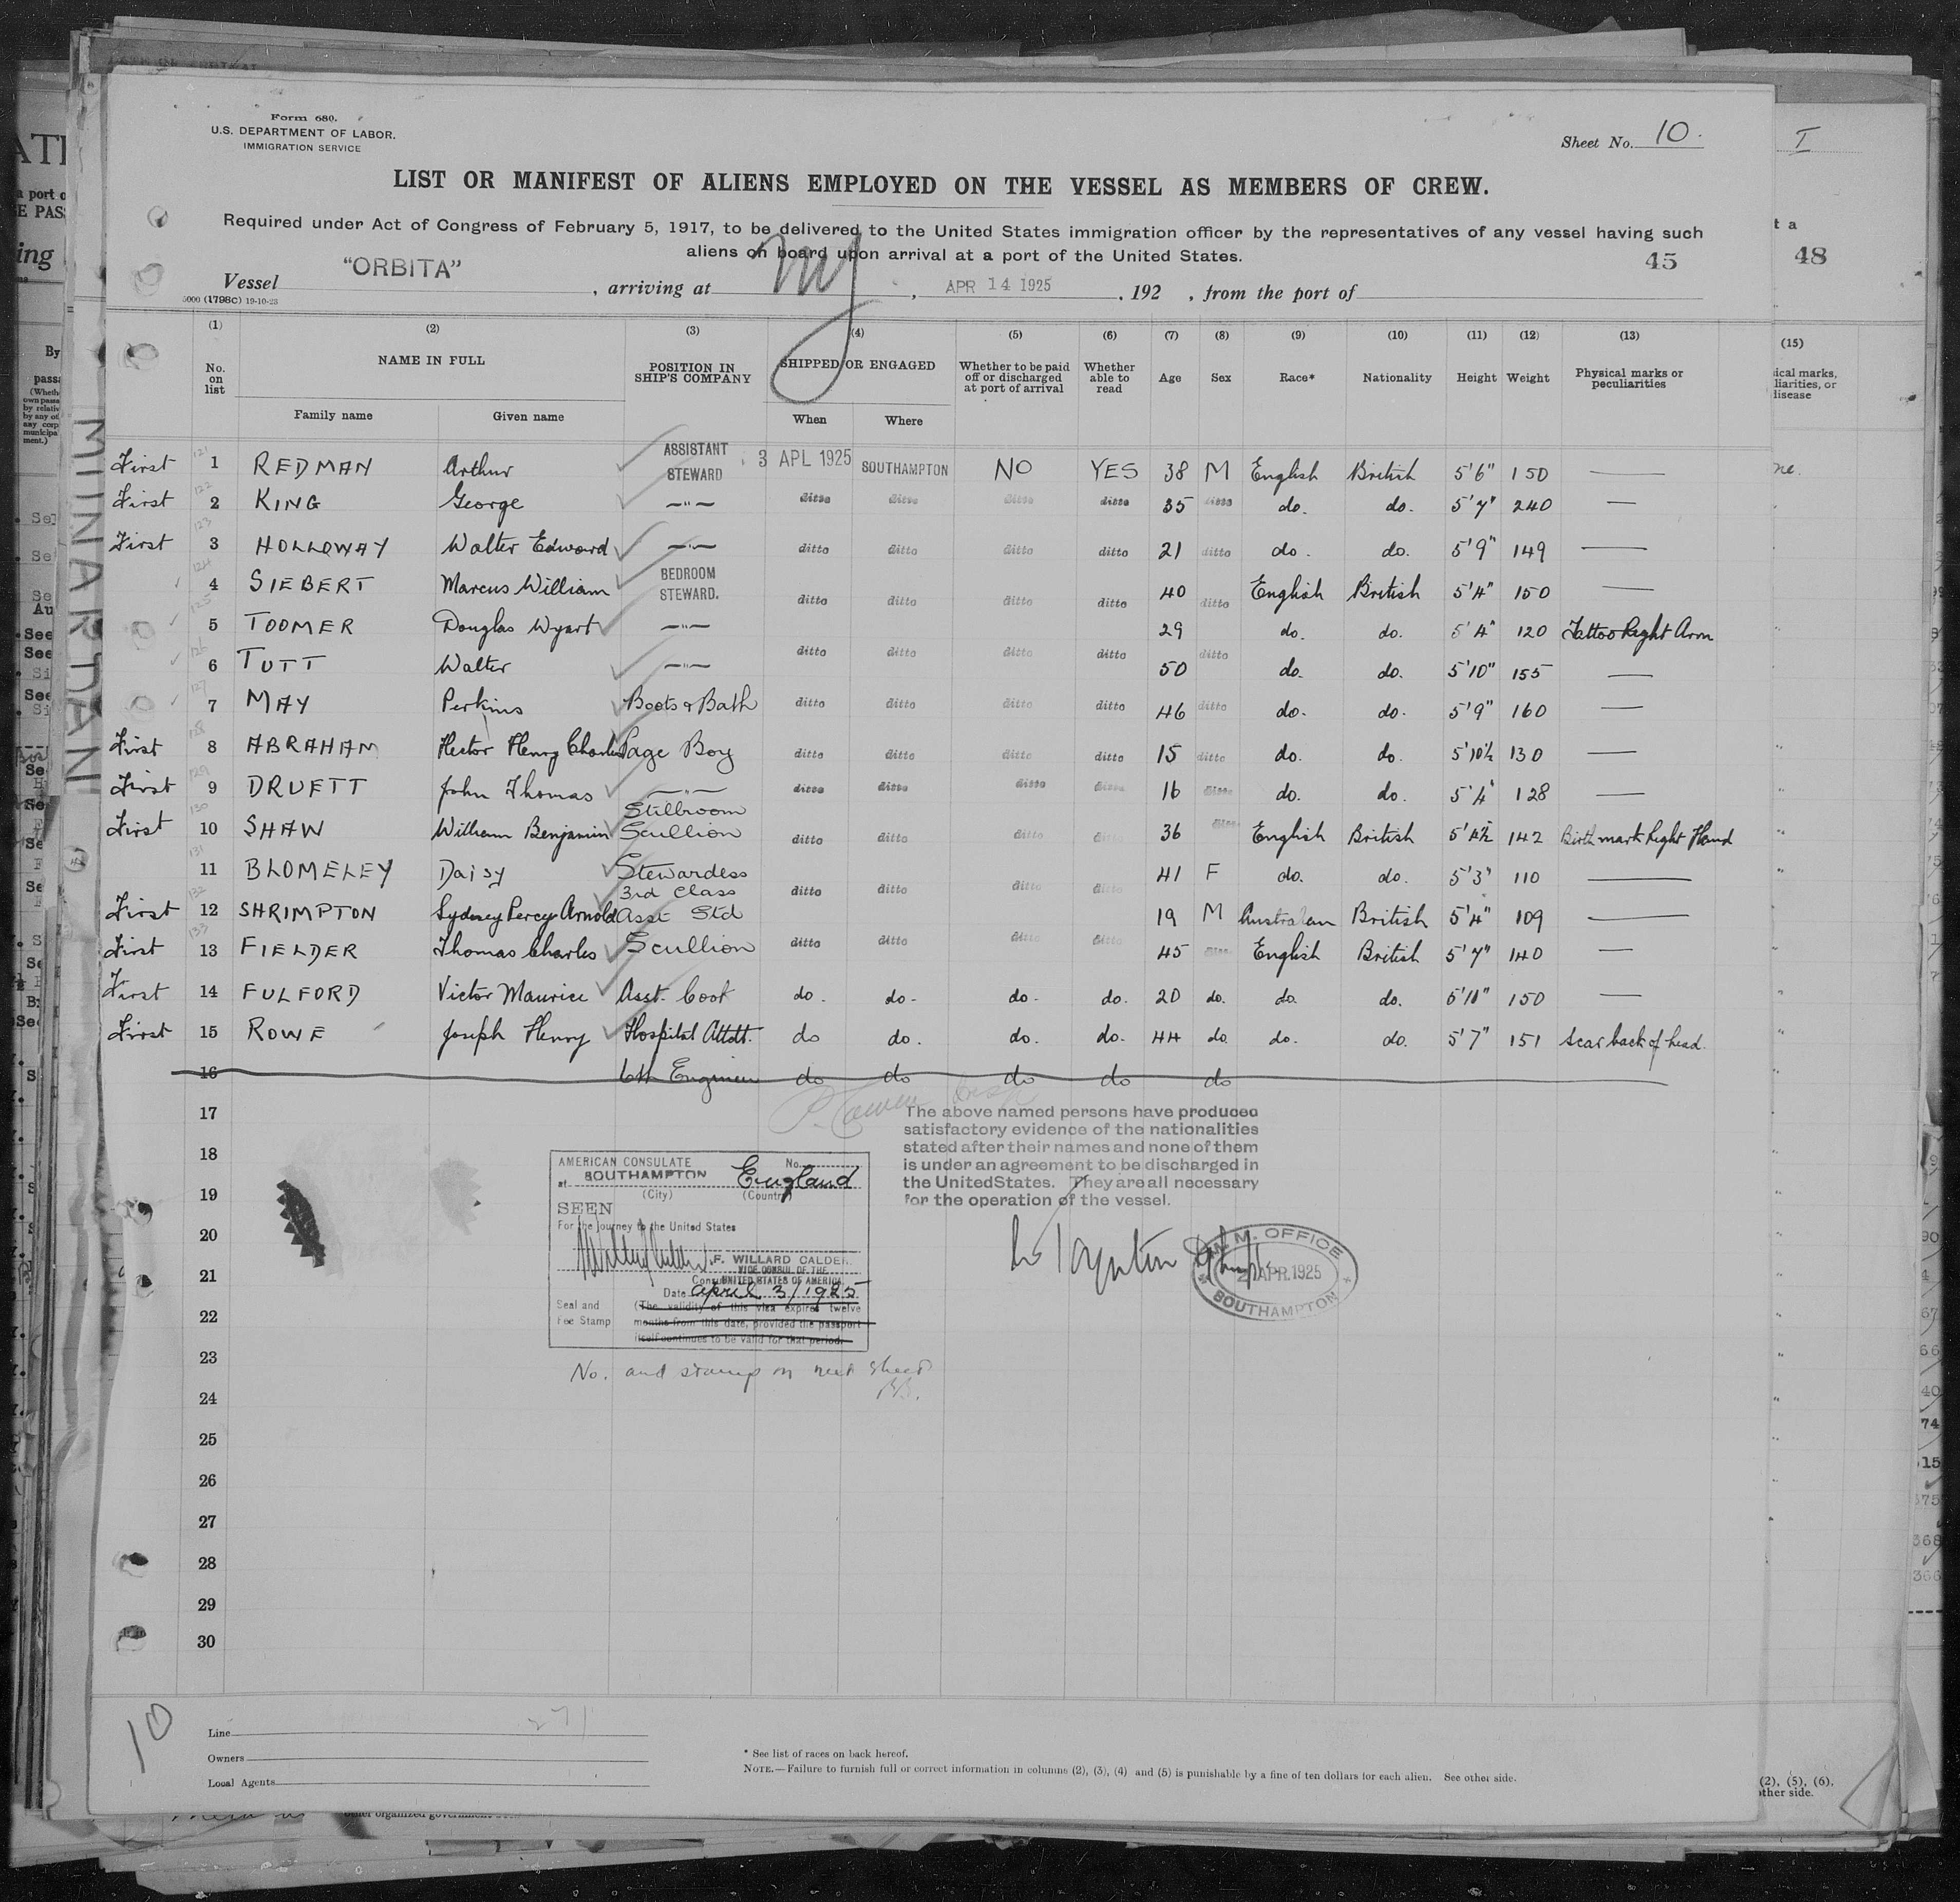 Form 680.
U.S. DEPARTMENT OF LABOR.
IMMIGRATION SERVICE
Sheet No. 10.
LIST OR MANIFEST OF ALIENS EMPLOYED ON THE VESSEL AS MEMBERS OF CREW.
Required under Act of Congress of February 5, 1917, to be delivered to the United States immigration officer by the representatives of any vessel having such
aliens on board upon arrival at a port of the United States.
45
48
Vessel "ORBITA", arriving at NY, APR 14 1925, 192 , from the port of
5000 (1798C) 19-10-23
(1) (2) (3) (4) (5) (6) (7) (8) (9) (10) (11) (12) (13) (15)
No. on list NAME IN FULL POSITION IN SHIP'S COMPANY SHIPPED OR ENGAGED Whether to be paid off or discharged at port of arrival Whether able to read Age Sex Race* Nationality Height Weight Physical marks or peculiarities
Family name Given name When Where
First 1 REDMAN Arthur ASSISTANT STEWARD 3 APL 1925 SOUTHAMPTON NO YES 38 M English British 5'6" 150 —
First 2 KING George —"— ditto ditto ditto ditto 35 ditto do. do. 5'7" 240 —
First 3 HOLLOWAY Walter Edward —"— ditto ditto ditto ditto 21 ditto do. do. 5'9" 149 —
4 SIEBERT Marcus William BEDROOM STEWARD. ditto ditto ditto ditto 40 ditto English British 5'4" 150 —
5 TOOMER Douglas Wyart —"— ditto ditto ditto ditto 29 ditto do. do. 5'4" 120 Tattoo Right Arm
6 TUTT Walter —"— 50 do. do. 5'10" 155 —
7 MAY Perkins Boots & Bath ditto ditto ditto ditto 46 ditto do. do. 5'9" 160 —
First 8 ABRAHAM Hector Henry Charles Page Boy ditto ditto ditto ditto 15 ditto do. do. 5'10½ 130 —
First 9 DRUETT John Thomas —"— ditto ditto ditto ditto 16 ditto do. do. 5'4" 128 —
First 10 SHAW William Benjamin Stillroom Scullion ditto ditto ditto ditto 36 ditto English British 5'4½ 142 Birth mark Right Hand
11 BLOMELEY Daisy Stewardess 3rd Class ditto ditto ditto ditto 41 F do. do. 5'3" 110 —
First 12 SHRIMPTON Sydney Percy Arnold Asst Std 19 M Australian British 5'4" 109 —
First 13 FIELDER Thomas Charles Scullion ditto ditto ditto ditto 45 ditto English British 5'7" 140 —
First 14 FULFORD Victor Maurice Asst. Cook do. do. do. do. 20 do. do. do. 5'10" 150 —
First 15 ROWE Joseph Henry Hospital Attdt. do do. do. do. 44 do do. do. 5'7" 151 Scar back of head.
16 6th Engineer do do do do do
17
18
19
20
21
22
23
24
25
26
27
28
29
30
The above named persons have produced
satisfactory evidence of the nationalities
stated after their names and none of them
is under an agreement to be discharged in
the United States. They are all necessary
for the operation of the vessel.
AMERICAN CONSULATE No.
at SOUTHAMPTON England
(City) (Country)
SEEN
For the journey to the United States
F. WILLARD CALDER
VICE CONSUL OF THE
UNITED STATES OF AMERICA
Date April 3/1925
Seal and Fee Stamp
(The validity of this visa expires twelve
months from this date, provided the passport
itself continues to be valid for that period.
M.M. OFFICE
2 APR.1925
SOUTHAMPTON
No. and stamp on next sheet
MUNARDANI
10
271
Line
Owners
Local Agents
* See list of races on back hereof.
NOTE.—Failure to furnish full or correct information in columns (2), (3), (4) and (5) is punishable by a fine of ten dollars for each alien. See other side.